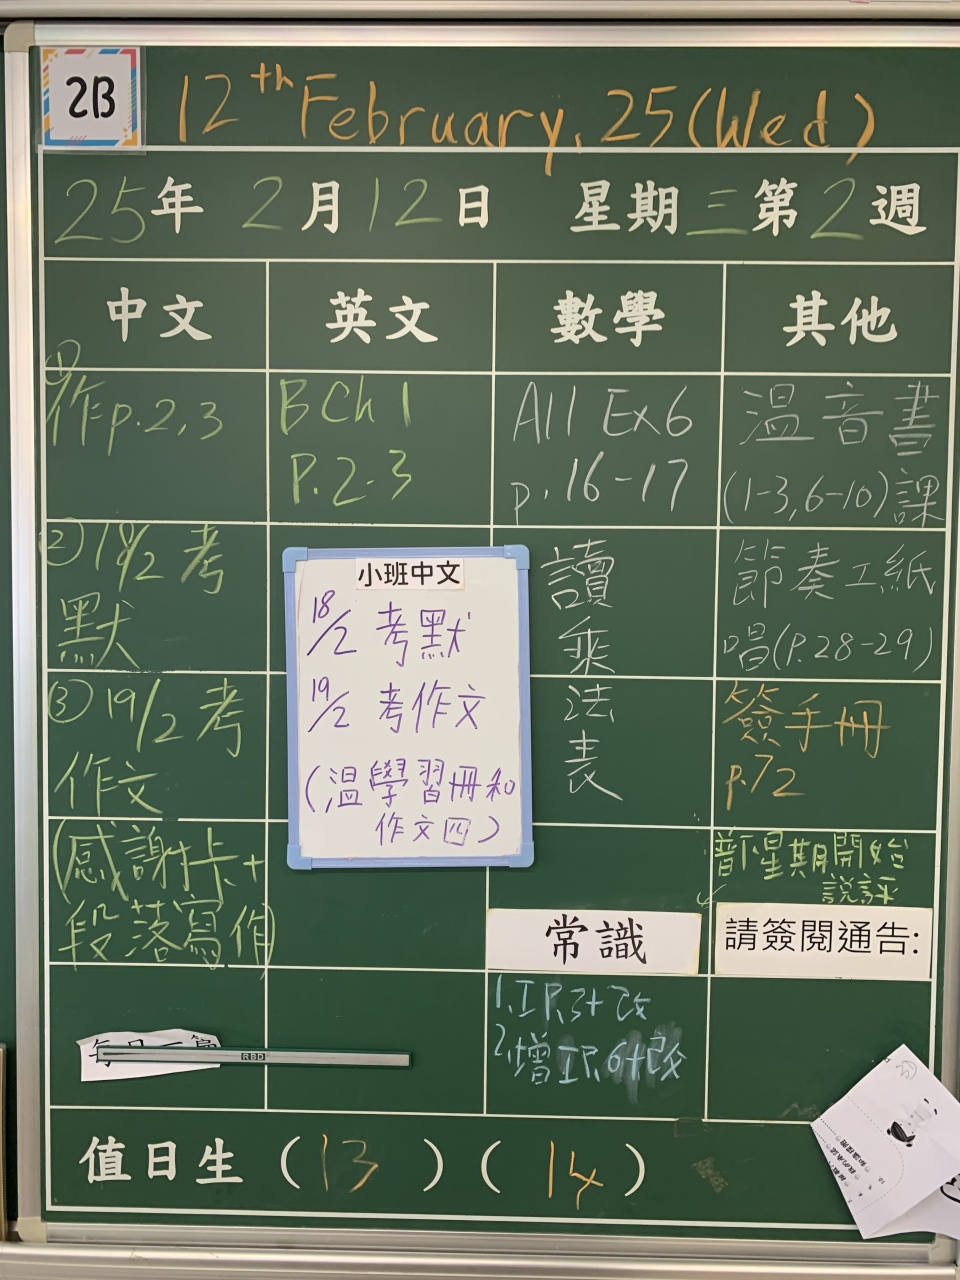 2B
12th February, 25 (Wed)
25年 2月12日 星期三第2週
中文
英文
數學
其他
①作p.2,3
②18/2 考
默
③19/2 考
作文
(感謝卡+
段落寫作)
B Ch 1
P.2-3
小班中文
18/2 考默
19/2 考作文
(溫學習冊和
作文四)
All Ex6
p.16-17
讀
乘
法
表
常識
1.工P.3+改
2.增工P.6+改
溫音書
(1-3,6-10)課
節奏工紙
唱(P.28-29)
簽手冊
p.72
星期開始
請簽閱通告:
RBD
值日生 (13) (14)